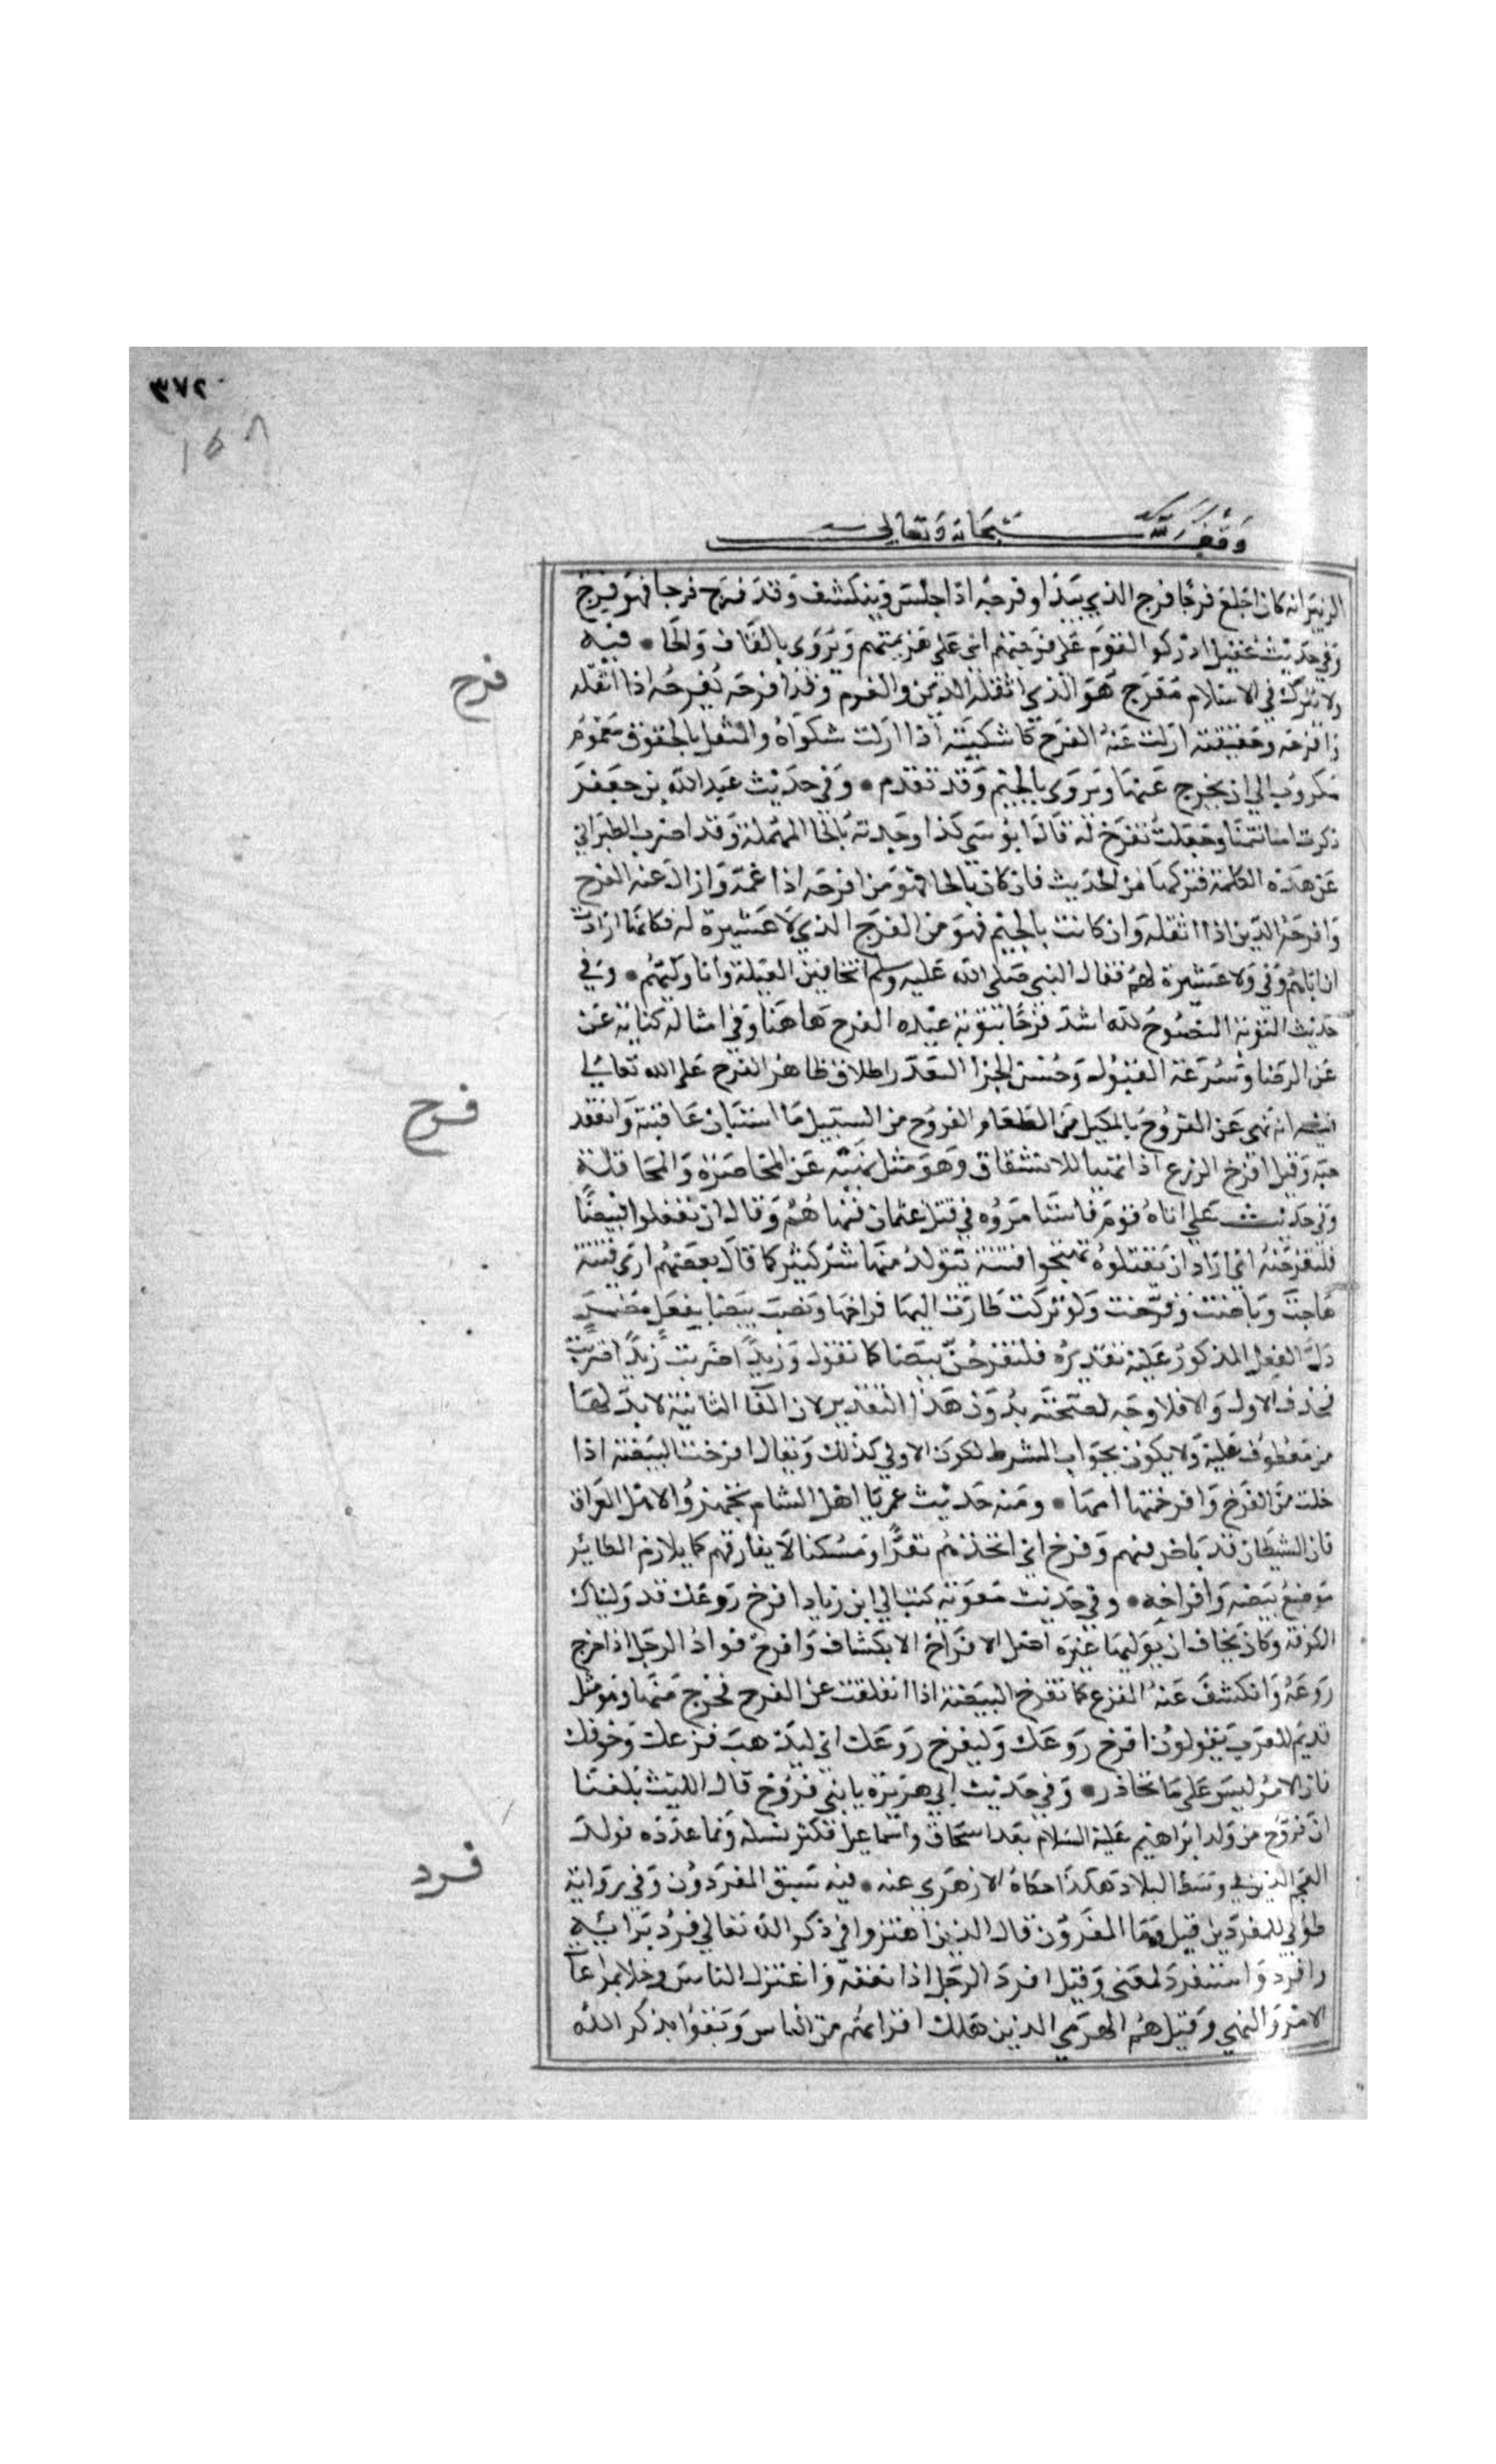 ٣٧٢
١٥٨
وقف لله سبحانه وتعالى
الزبير انه كان اجلع فرجا فرج الذي يبدا وفرجه اذا جلس وينكشف وقد فرج فرجا فهو فرج
وفي حديث عقيل ادركوا القوم على فرجتهم اى على هزيمتهم ويروى بالقاف والحا • فيه
فرح
ولا يترك في الاسلام مفرح هو الذي اثقله الدين والغرم وقد افرحه يفرحه اذا اثقله
وافرحه وحقيقته ازلت عنه الفرح كاشكيته اذا ازلت شكواه والمثقل بالحقوق مغموم
مكروب الي ان يخرج عنها ويروى بالجيم وقد تقدم • وفي حديث عبد الله بن جعفر
ذكرت امنا يتمنا وجعلت تفرح له قال ابو موسى كذا وجدته بالحا المهملة وقد اضرب الطبراني
عن هذه الكلمة فتركها من الحديث فان كان بالحا فهو من افرحه اذا غمه وازال عنه الفرح
وافرحه الدين اذا اثقله وان كانت بالجيم فهو من المفرج الذي لا عشيرة له فكانها ارادت
ان اباهم توفي ولا عشيرة لهم فقال النبي صلى الله عليه وسلم اتخافين العيلة وانا وليهم • وفي
حديث التوبة النصوح لله اشد فرحا بتوبة عبده الفرح هاهنا وفي امثاله كناية عن
عن الرضا وسرعة القبول وحسن الجزا لتعذر اطلاق ظاهر الفرح على الله تعالى
فرخ
فيه انه نهى عن الفروخ بالمكيل من الطعام الفروخ من السنبل ما استبان عاقبته وانعقد
حبه وقيل افرخ الزرع اذا تهيا للانشقاق وهو مثل نهيه عن المخاضرة والمحاقلة
وفي حديث علي اتاه قوم فاستامروه في قتل عثمان فنهاهم وقال ان تفعلوا فبيضا
فلتفرخنه اي اراد ان يقتلوه تهيجوا فتنة يتولد منها شر كثير كما قال بعضهم ارى فتنة
هاجت وباضت وفرخت ولو تركت طارت اليها فراخها ونصب بيضا بفعل مضمر
دل الفعل المذكور عليه تقديره فلتفرخن بيضا كما تقول وزيدا اضربت زيدا اضربت
فحذف الاول والا فلا وجه لصحته بدون هذا التقدير لان الفا الثانية لابد لها
من معطوف عليه ولا يكون بجواب الشرط لكون الاولى كذلك ويقال افرخت البيضة اذا
خلت من الفرخ وافرختها امها • ومنه حديث عمر يا اهل الشام تجهزوا لاهل العراق
فان الشيطان قد باض فيهم وفرخ اي اتخذهم مقرا ومسكنا لا يفارقهم كما يلازم الطائر
موضع بيضه وافراخه • وفي حديث معوية كتب الي ابن زياد افرخ روعك قد وليناك
الكوفة وكان يخاف ان يوليها غيره اصل الافراخ الانكشاف وافرخ فواد الرجل اذا خرج
روعه وانكشف عنه الفزع كما تفرخ البيضة اذا انفلقت عن الفرخ فخرج منها وهو مثل
قديم للعرب يقولون افرخ روعك وليفرخ روعك اي ليذهب فزعك وخوفك
فان الامر ليس على ما تحاذر • وفي حديث ابي هريرة يا بني فروخ قال الليث بلغنا
ان فروخ من ولد ابراهيم عليه السلام بعد اسحاق واسماعيل فكثر نسله ونما عدده فولد
فرد
العجم الذين في وسط البلاد هكذا حكاه الازهري عنه • فيه سبق المفردون وفي رواية
طوبى للمفردين قيل وما المفردون قال الذين اهتزوا في ذكر الله تعالى فرد برائيه
وافرد واستفرد لمعنى وقيل افرد الرجل اذا تفقه واعتزل الناس وخلا بمراعاة
الامر والنهي وقيل هم الهرمي الذين هلك اقرانهم من الناس وبقوا بذكر الله